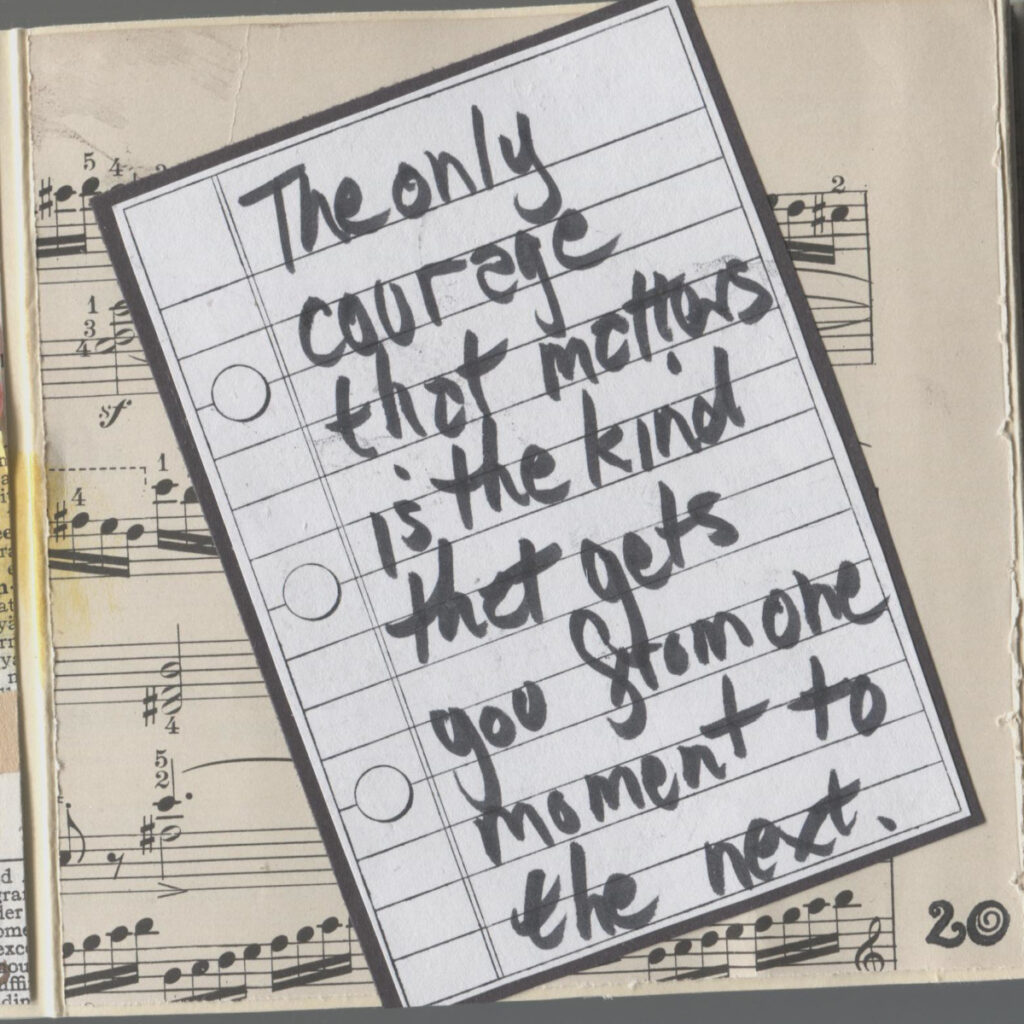 The only
courage
that matters
is the kind
that gets
you from one
moment to
the next.
20
5 4
2
1
3
4
sf
1
4
4
5
2